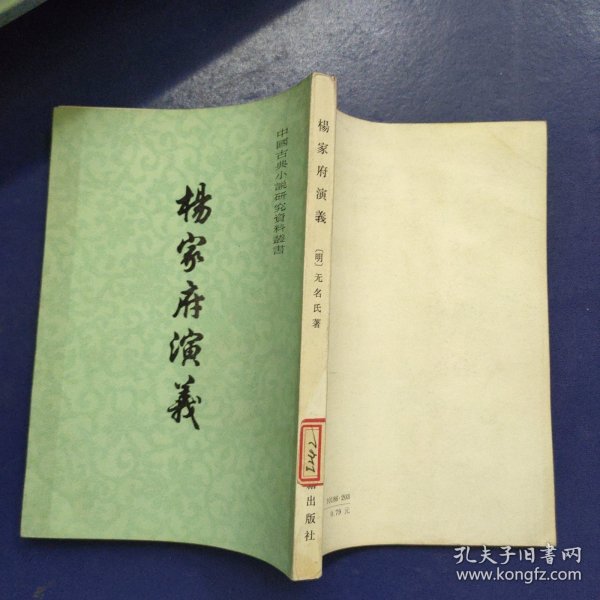 中國古典小説研究資料叢書
楊家府演義
楊家府演義
〔明〕无名氏著
I242
出版社
10186·203
0.79 元
孔夫子旧书网
www.kongfz.com